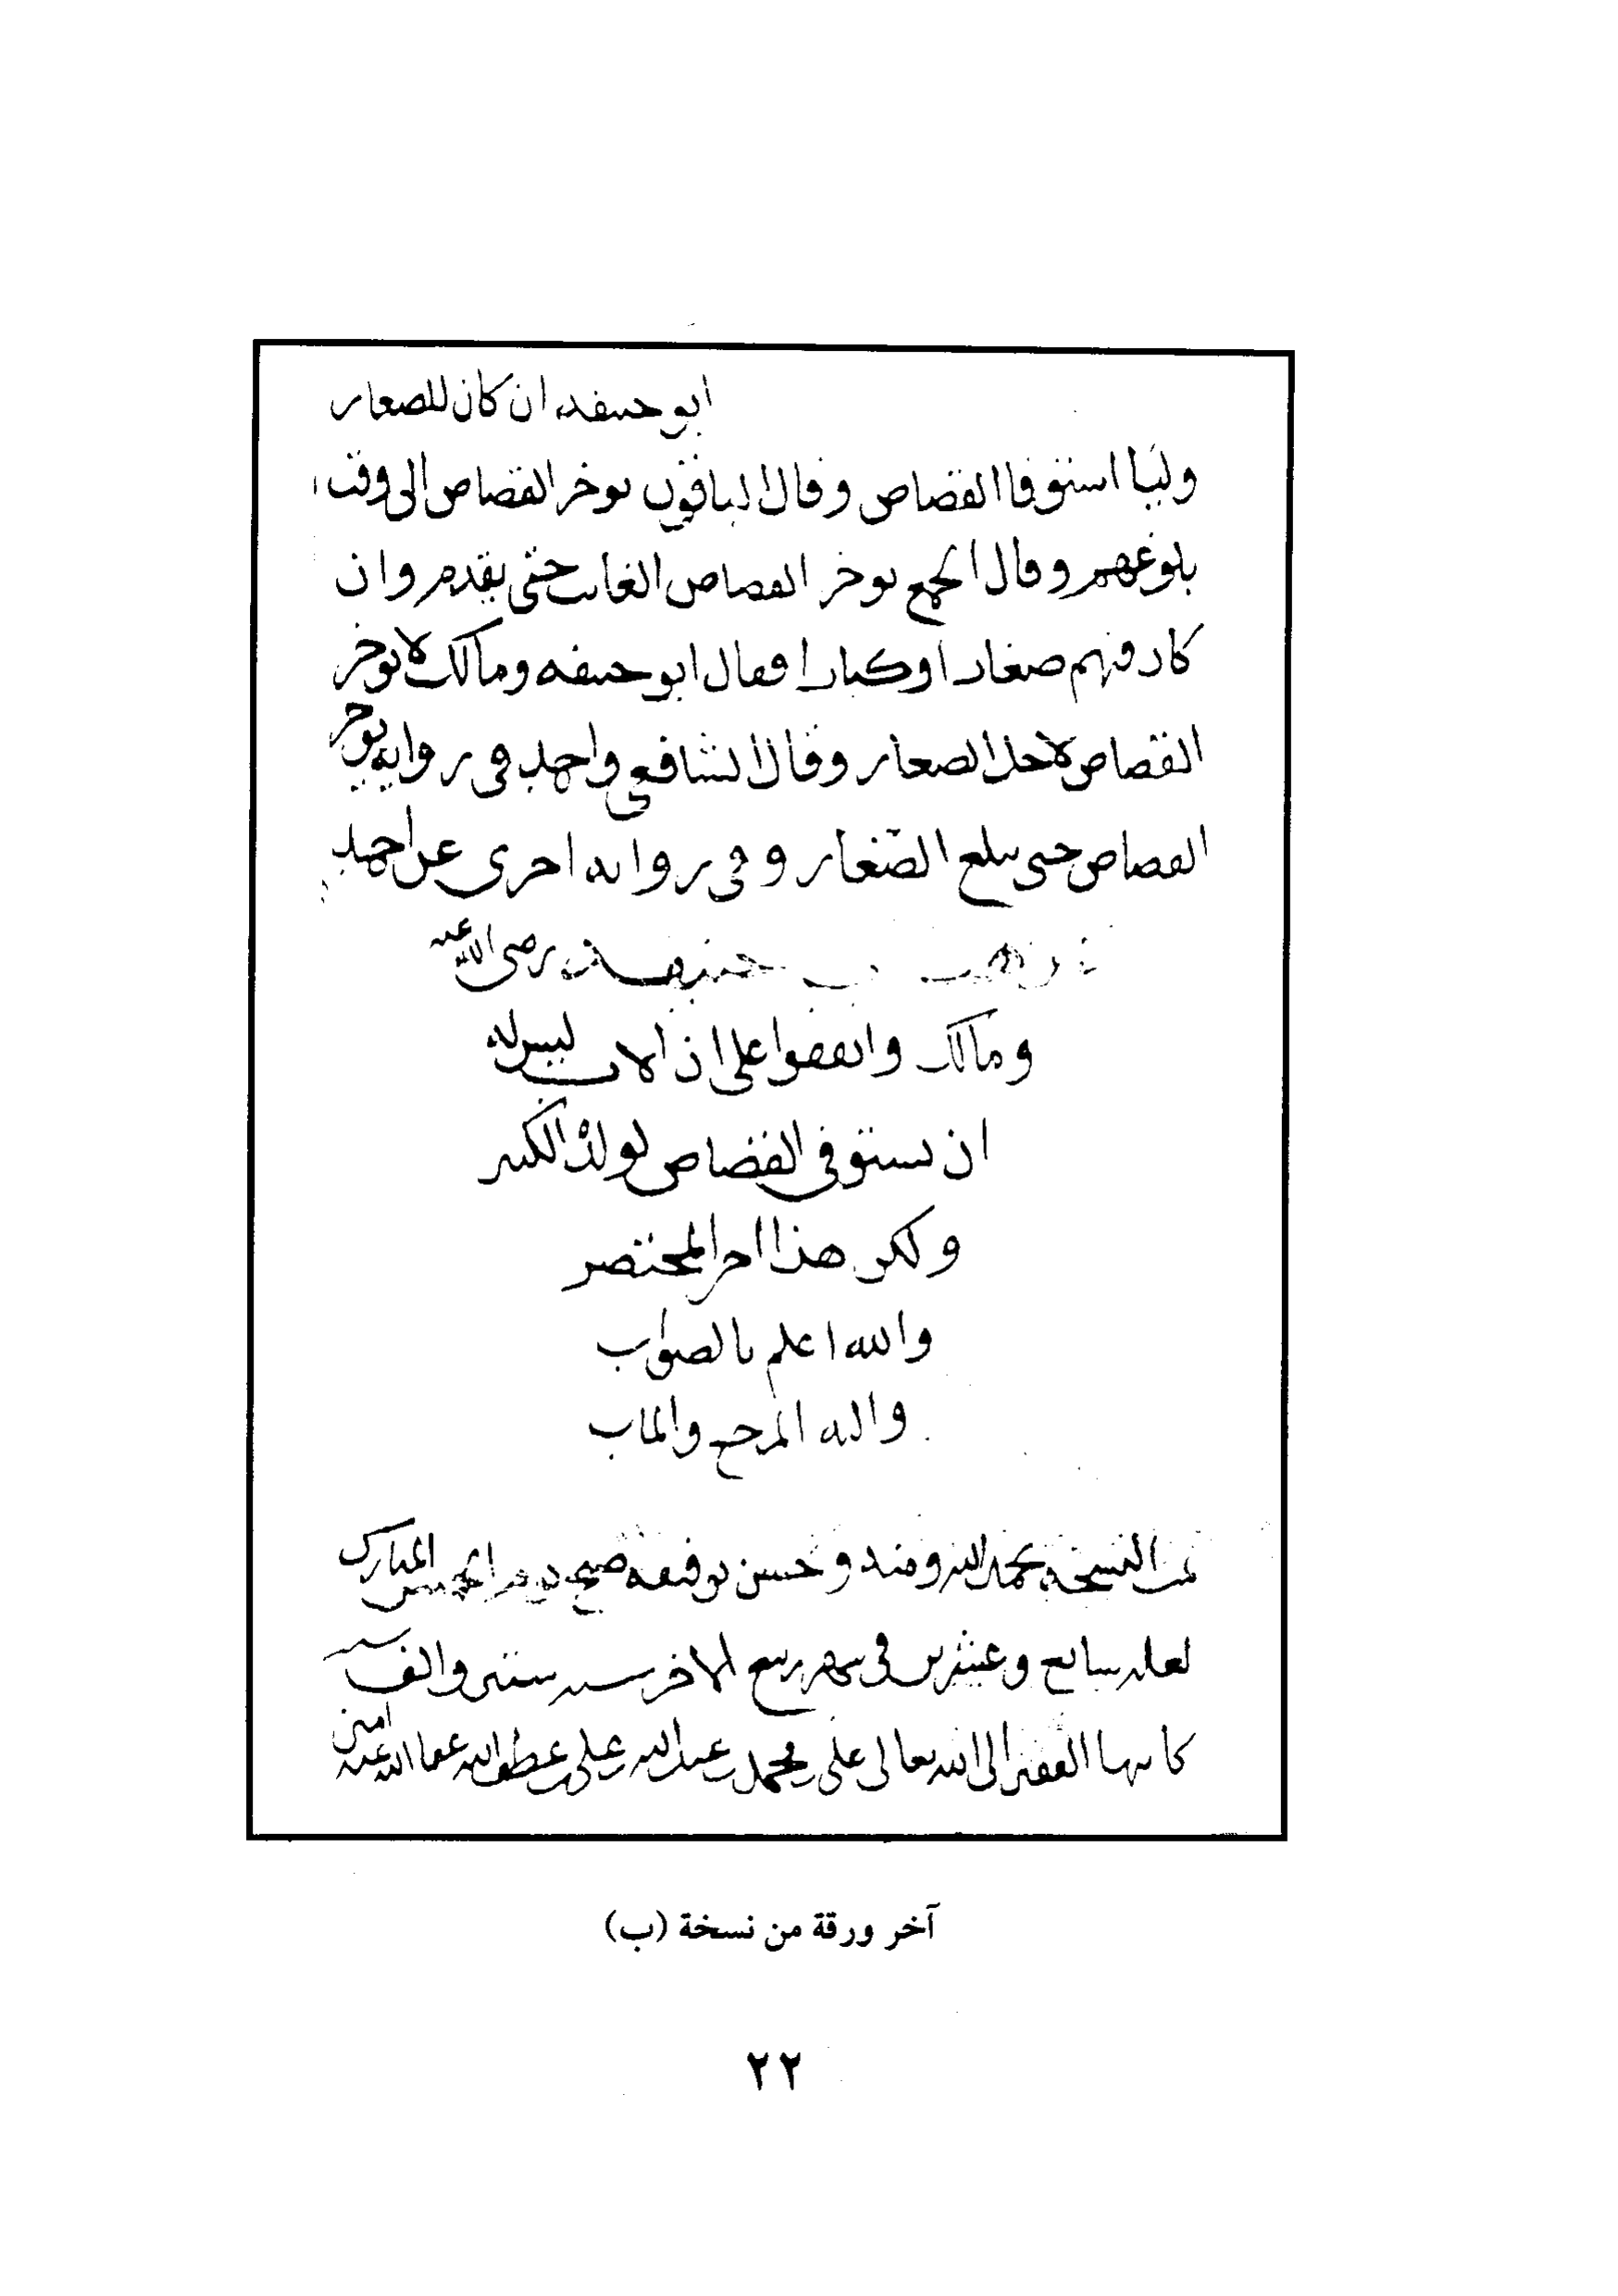 ابو حنيفه ان كان للصغار
وليا استوفا القصاص وقال الباقون يوخر القصاص الى وقت
بلوغهم وقال الجميع يوخر القصاص الغايب حتى يقدم وان
كان فيهم صغارا وكبارا فقال ابو حنيفه ومالك لا يوخر
القصاص لاجل الصغار وقال الشافعي واحمد في روايه يوخر
القصاص حتى يبلغ الصغار وفي روايه اخرى عن احمد
حنيفه رضى الله عنه
ومالك واتفقوا على ان الاب ليس له
ان يستوفي القصاص لولده الكبير
وليكن هذا اخر المختصر
والله اعلم بالصواب
واليه المرجع والماب
تمت النسخه بحمد الله ومنه وحسن توفيقه صبح يوم الخميس المبارك
لعله سابع وعشرين في شهر ربيع الاخر سنه ستين والف
كاتبها الفقير الى الله تعالى على محمد عبد الله على عفا الله عنه امين
آخر ورقة من نسخة (ب)
٢٢